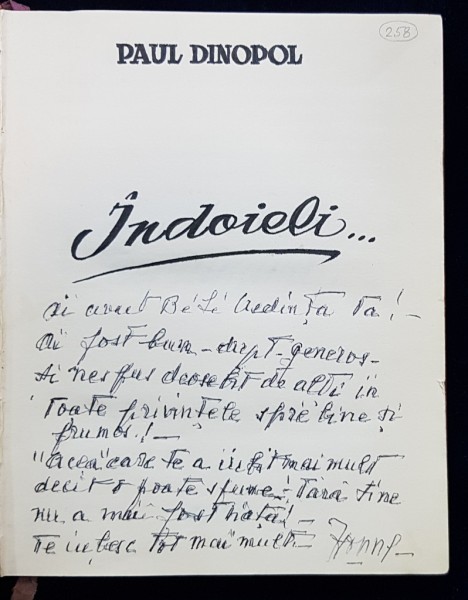 258
PAUL DINOPOL
Îndoieli...
ai avut Bé Lé credința ta! –
ai fost bun – drept – generos –
și nespus deosebit de alții in
toate privințele spre bine și
frumos! –
"Aceea" care te a iubit mai mult
decît o poate spune! fără tine
nu a mai fost viață! –
te iubesc tot mai mult –